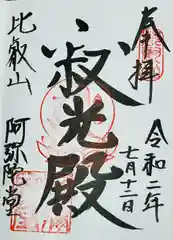 奉拝
令和二年
七月十二日
寂光殿
比叡山
阿弥陀堂